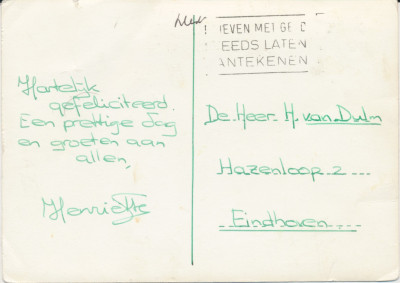 IEVEN MET GE D
EEDS LATEN
ANTEKENEN
Hartelijk
gefeliciteerd.
Een prettige dag
en groeten aan
allen,
Henriëtte
De Heer H. van Dulm
Hazenloop 2
Eindhoven